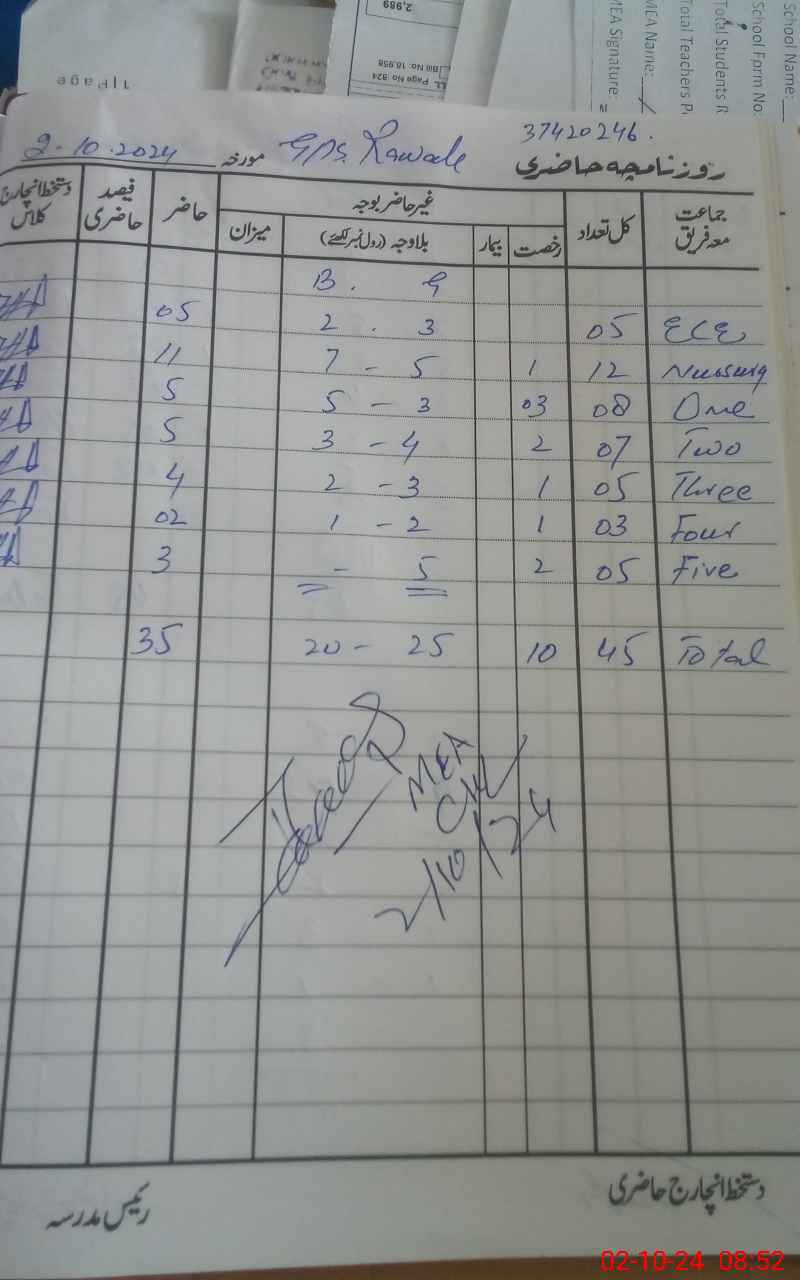 1|Page
2,989
Bill No: 16,958
Page No: 824
School Name:
School Form No:
Total Students R
Total Teachers P
MEA Name:
MEA Signature:
37420246.
روزنامچہ حاضری GPS. Rawale مورخہ 2-10.2024
جماعت معہ فریق کل تعداد غیر حاضر بوجہ حاضر فیصد حاضری دستخط انچارج کلاس
رخصت بیمار بلاوجہ (رول نمبر لکھئے) میزان
B. G
ECE 05 2 . 3 05
Nursury 12 1 7 - 5 11
One 08 03 5 - 3 5
Two 07 2 3 - 4 5
Three 05 1 2 - 3 4
Four 03 1 1 - 2 02
Five 05 2 - 5 3
Total 45 10 20 - 25 35
MEA
CKL
2/10/24
دستخط انچارج حاضری رئیس مدرسہ
02-10-24 08:52